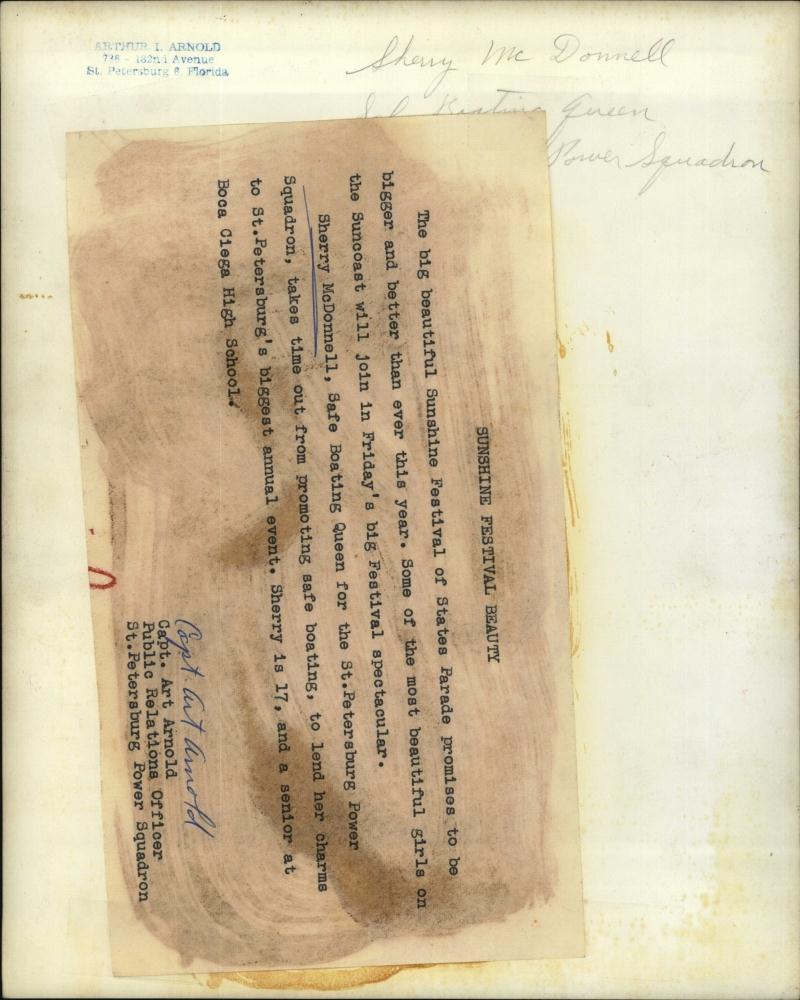 ARTHUR I. ARNOLD
736 - 182nd Avenue
St. Petersburg 8, Florida
Sherry Mc Donnell
Boating Queen
Power Squadron
SUNSHINE FESTIVAL BEAUTY
The big beautiful Sunshine Festival of States Parade promises to be
bigger and better than ever this year. Some of the most beautiful girls on
the Suncoast will join in Friday's big Festival spectacular.
Sherry McDonnell, Safe Boating Queen for the St.Petersburg Power
Squadron, takes time out from promoting safe boating, to lend her charms
to St.Petersburg's biggest annual event. Sherry is 17, and a senior at
Boca Ciega High School.
Capt. Art Arnold
Capt. Art Arnold
Public Relations Officer
St.Petersburg Power Squadron